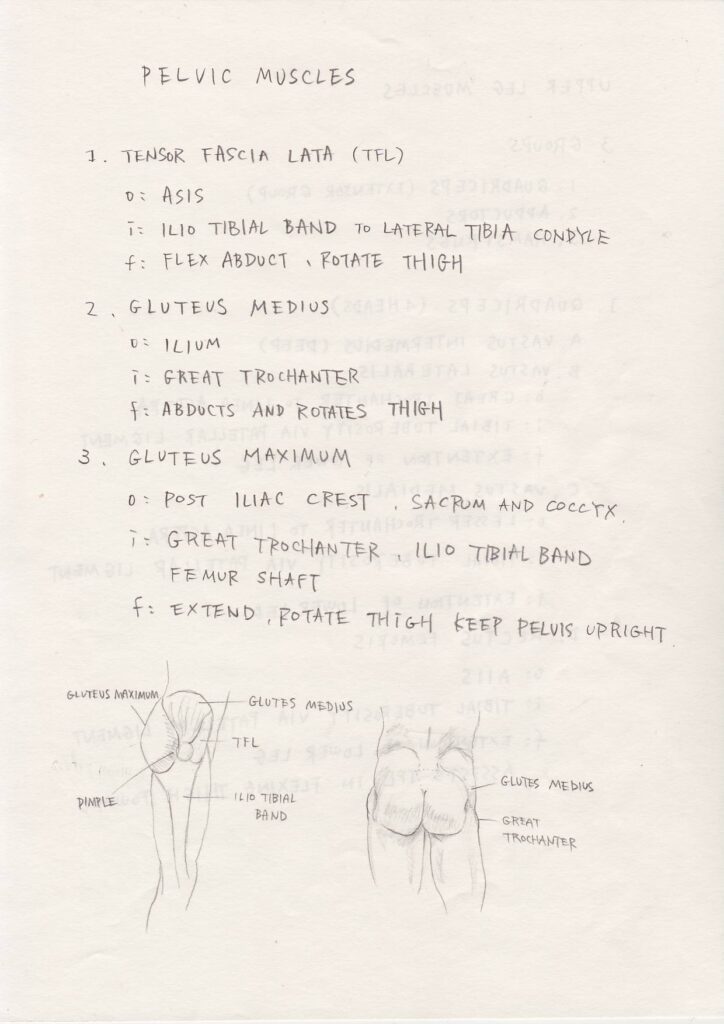 PELVIC MUSCLES
1. TENSOR FASCIA LATA (TFL)
O: ASIS
i: ILIO TIBIAL BAND TO LATERAL TIBIA CONDYLE
f: FLEX ABDUCT, ROTATE THIGH
2. GLUTEUS MEDIUS
O: ILIUM
i: GREAT TROCHANTER
f: ABDUCTS AND ROTATES THIGH
3. GLUTEUS MAXIMUM
O: POST ILIAC CREST, SACRUM AND COCCYX.
i: GREAT TROCHANTER, ILIO TIBIAL BAND
FEMUR SHAFT
f: EXTEND, ROTATE THIGH KEEP PELVIS UPRIGHT.
GLUTEUS MAXIMUM
GLUTES MEDIUS
TFL
DIMPLE
ILIO TIBIAL
BAND
GLUTES MEDIUS
GREAT
TROCHANTER